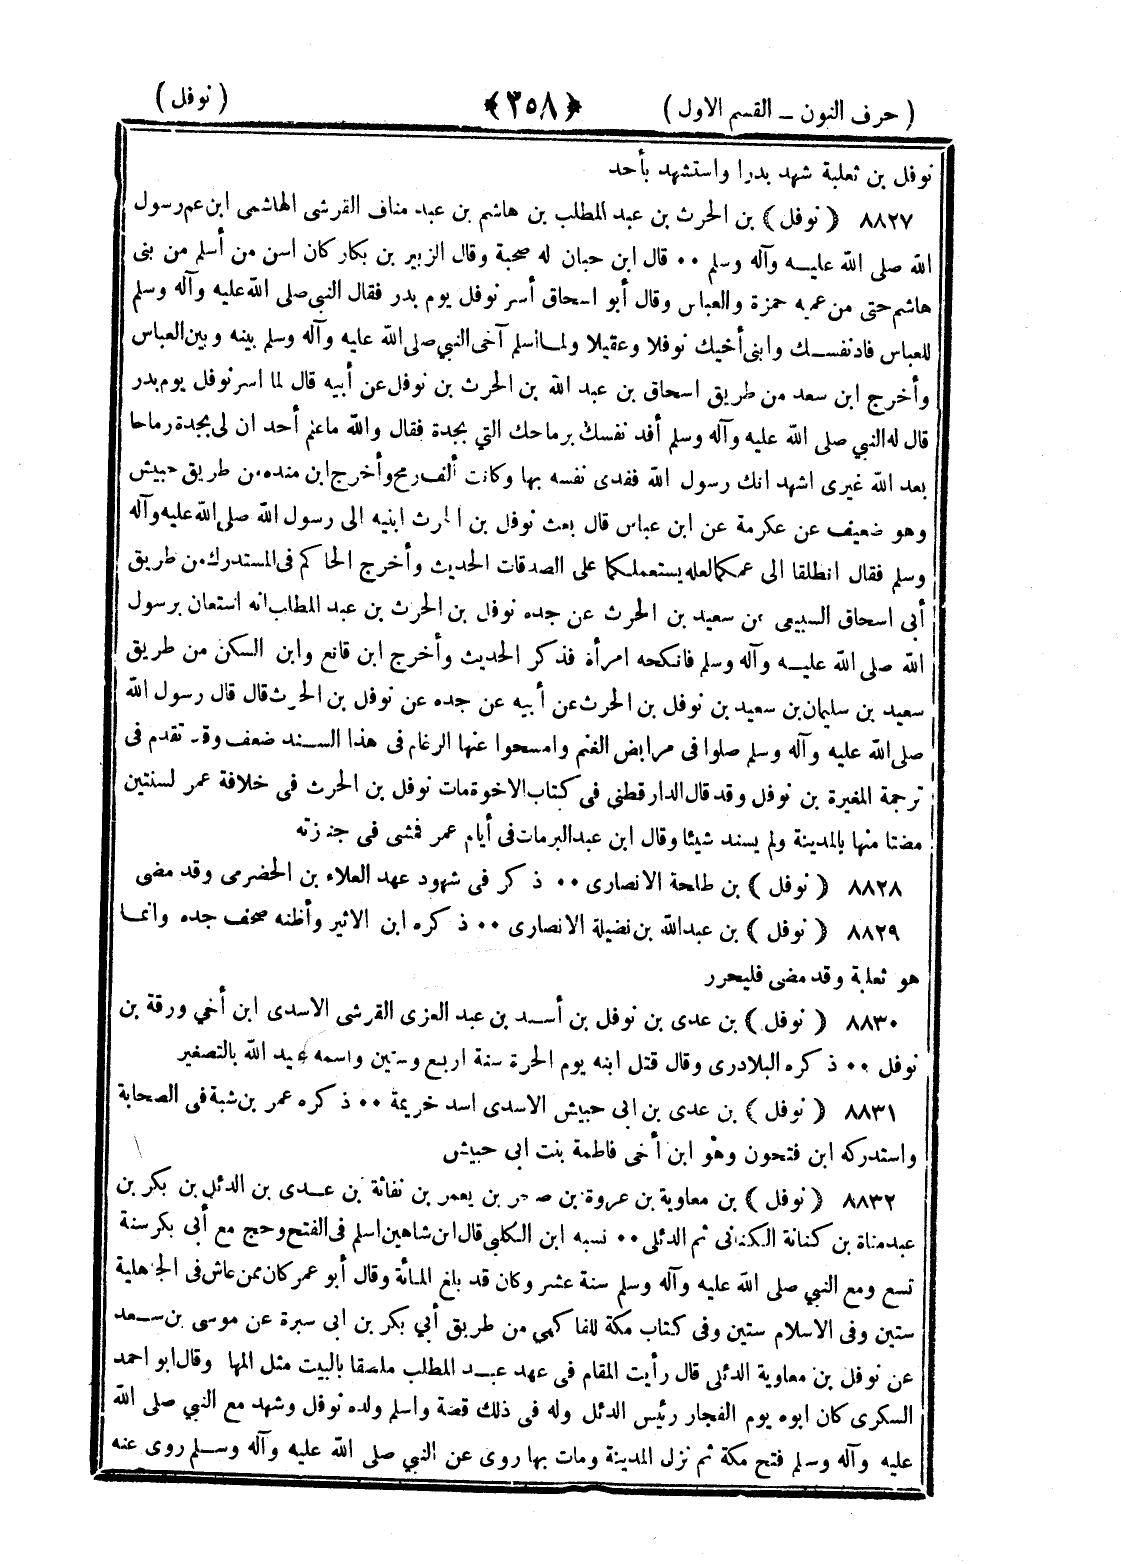 ( حرف النون ــ القسم الاول ) ﴿٣٥٨﴾ ( نوفل )
نوفل بن ثعلبة شهد بدرا واستشهد بأحد
٨٨٢٧ ( نوفل ) بن الحرث بن عبد المطلب بن هاشم بن عبد مناف القرشى الهاشمى ابن عم رسول
الله صلى الله عليه وآله وسلم ٠٠ قال ابن حبان له صحبة وقال الزبير بن بكار كان اسن من أسلم من بنى
هاشم حتى من عميه حمزة والعباس وقال أبو اسحاق أسر نوفل يوم بدر فقال النبي صلى الله عليه وآله وسلم
للعباس فاد نفسك وابنى أخيك نوفلا وعقيلا ولما أسلم آخى النبي صلى الله عليه وآله وسلم بينه وبين العباس
وأخرج ابن سعد من طريق اسحاق بن عبد الله بن الحرث بن نوفل عن أبيه قال لما اسر نوفل يوم بدر
قال له النبي صلى الله عليه وآله وسلم أفد نفسك برماحك التي بجدة فقال والله ماعلم أحد ان لى بجدة رماحا
بعد الله غيرى اشهد انك رسول الله ففدى نفسه بها وكانت ألف رمح وأخرج ابن منده من طريق حبيش
وهو ضعيف عن عكرمة عن ابن عباس قال بعث نوفل بن الحرث ابنيه الى رسول الله صلى الله عليه وآله
وسلم فقال انطلقا الى عمكما لعله يستعملكما على الصدقات الحديث وأخرج الحاكم فى المستدرك من طريق
أبى اسحاق السبيعى عن سعيد بن الحرث عن جده نوفل بن الحرث بن عبد المطلب انه استعان برسول
الله صلى الله عليه وآله وسلم فانكحه امرأة فذكر الحديث وأخرج ابن قانع وابن السكن من طريق
سعيد بن سليمان بن سعيد بن نوفل بن الحرث عن أبيه عن جده عن نوفل بن الحرث قال قال رسول الله
صلى الله عليه وآله وسلم صلوا فى مرابض الغنم وامسحوا عنها الرغام فى هذا السند ضعف وقد تقدم فى
ترجمة المغيرة بن نوفل وقد قال الدارقطنى فى كتاب الاخوة مات نوفل بن الحرث فى خلافة عمر لسنتين
مضتا منها بالمدينة ولم يسند شيئا وقال ابن عبد البر مات فى أيام عمر فمشى فى جنازته
٨٨٢٨ ( نوفل ) بن طلحة الانصارى ٠٠ ذكر فى شهود عهد العلاء بن الحضرمى وقد مضى
٨٨٢٩ ( نوفل ) بن عبدالله بن نضيلة الانصارى ٠٠ ذكره ابن الاثير وأظنه صحف جده وانما
هو ثعلبة وقد مضى فليحرر
٨٨٣٠ ( نوفل ) بن عدى بن نوفل بن أسد بن عبد العزى القرشى الاسدى ابن أخي ورقة بن
نوفل ٠٠ ذكره البلادرى وقال قتل ابنه يوم الحرة سنة اربع وستين واسمه عبيد الله بالتصغير
٨٨٣١ ( نوفل ) بن عدى بن ابى حبيش الاسدى اسد خزيمة ٠٠ ذكره عمر بن شبة فى الصحابة
واستدركه ابن فتحون وهو ابن أخى فاطمة بنت ابى حبيش
٨٨٣٢ ( نوفل ) بن معاوية بن عروة بن صخر بن يعمر بن نفاثة بن عدى بن الدئل بن بكر بن
عبد مناة بن كنانة الكنانى ثم الدئلى ٠٠ نسبه ابن الكلبى قال ابن شاهين اسلم فى الفتح وحج مع أبى بكر سنة
تسع ومع النبي صلى الله عليه وآله وسلم سنة عشر وكان قد بلغ المائة وقال أبو عمر كان ممن عاش فى الجاهلية
ستين وفى الاسلام ستين وفى كتاب مكة للفاكهى من طريق أبي بكر بن ابى سبرة عن موسى بن سعد
عن نوفل بن معاوية الدئلى قال رأيت المقام فى عهد عبد المطلب ملصقا بالبيت مثل المها وقال ابو احمد
السكرى كان ابوه يوم الفجار رئيس الدئل وله فى ذلك قصة واسلم ولده نوفل وشهد مع النبي صلى الله
عليه وآله وسلم فتح مكة ثم نزل المدينة ومات بها روى عن النبي صلى الله عليه وآله وسلم روى عنه